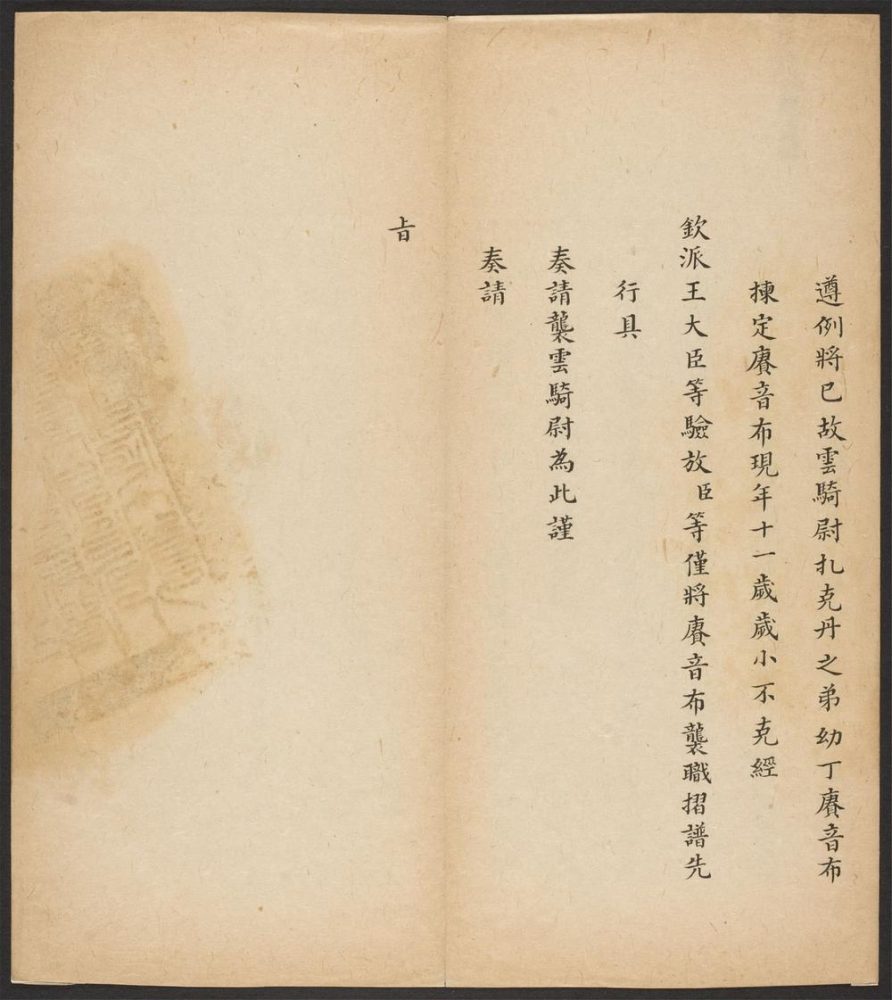 遵例將已故雲騎尉扎克丹之弟幼丁賡音布
揀定賡音布現年十一歲歲小不克經
欽派王大臣等驗放臣等僅將賡音布襲職摺譜先
行具
奏請襲雲騎尉為此謹
奏請
旨